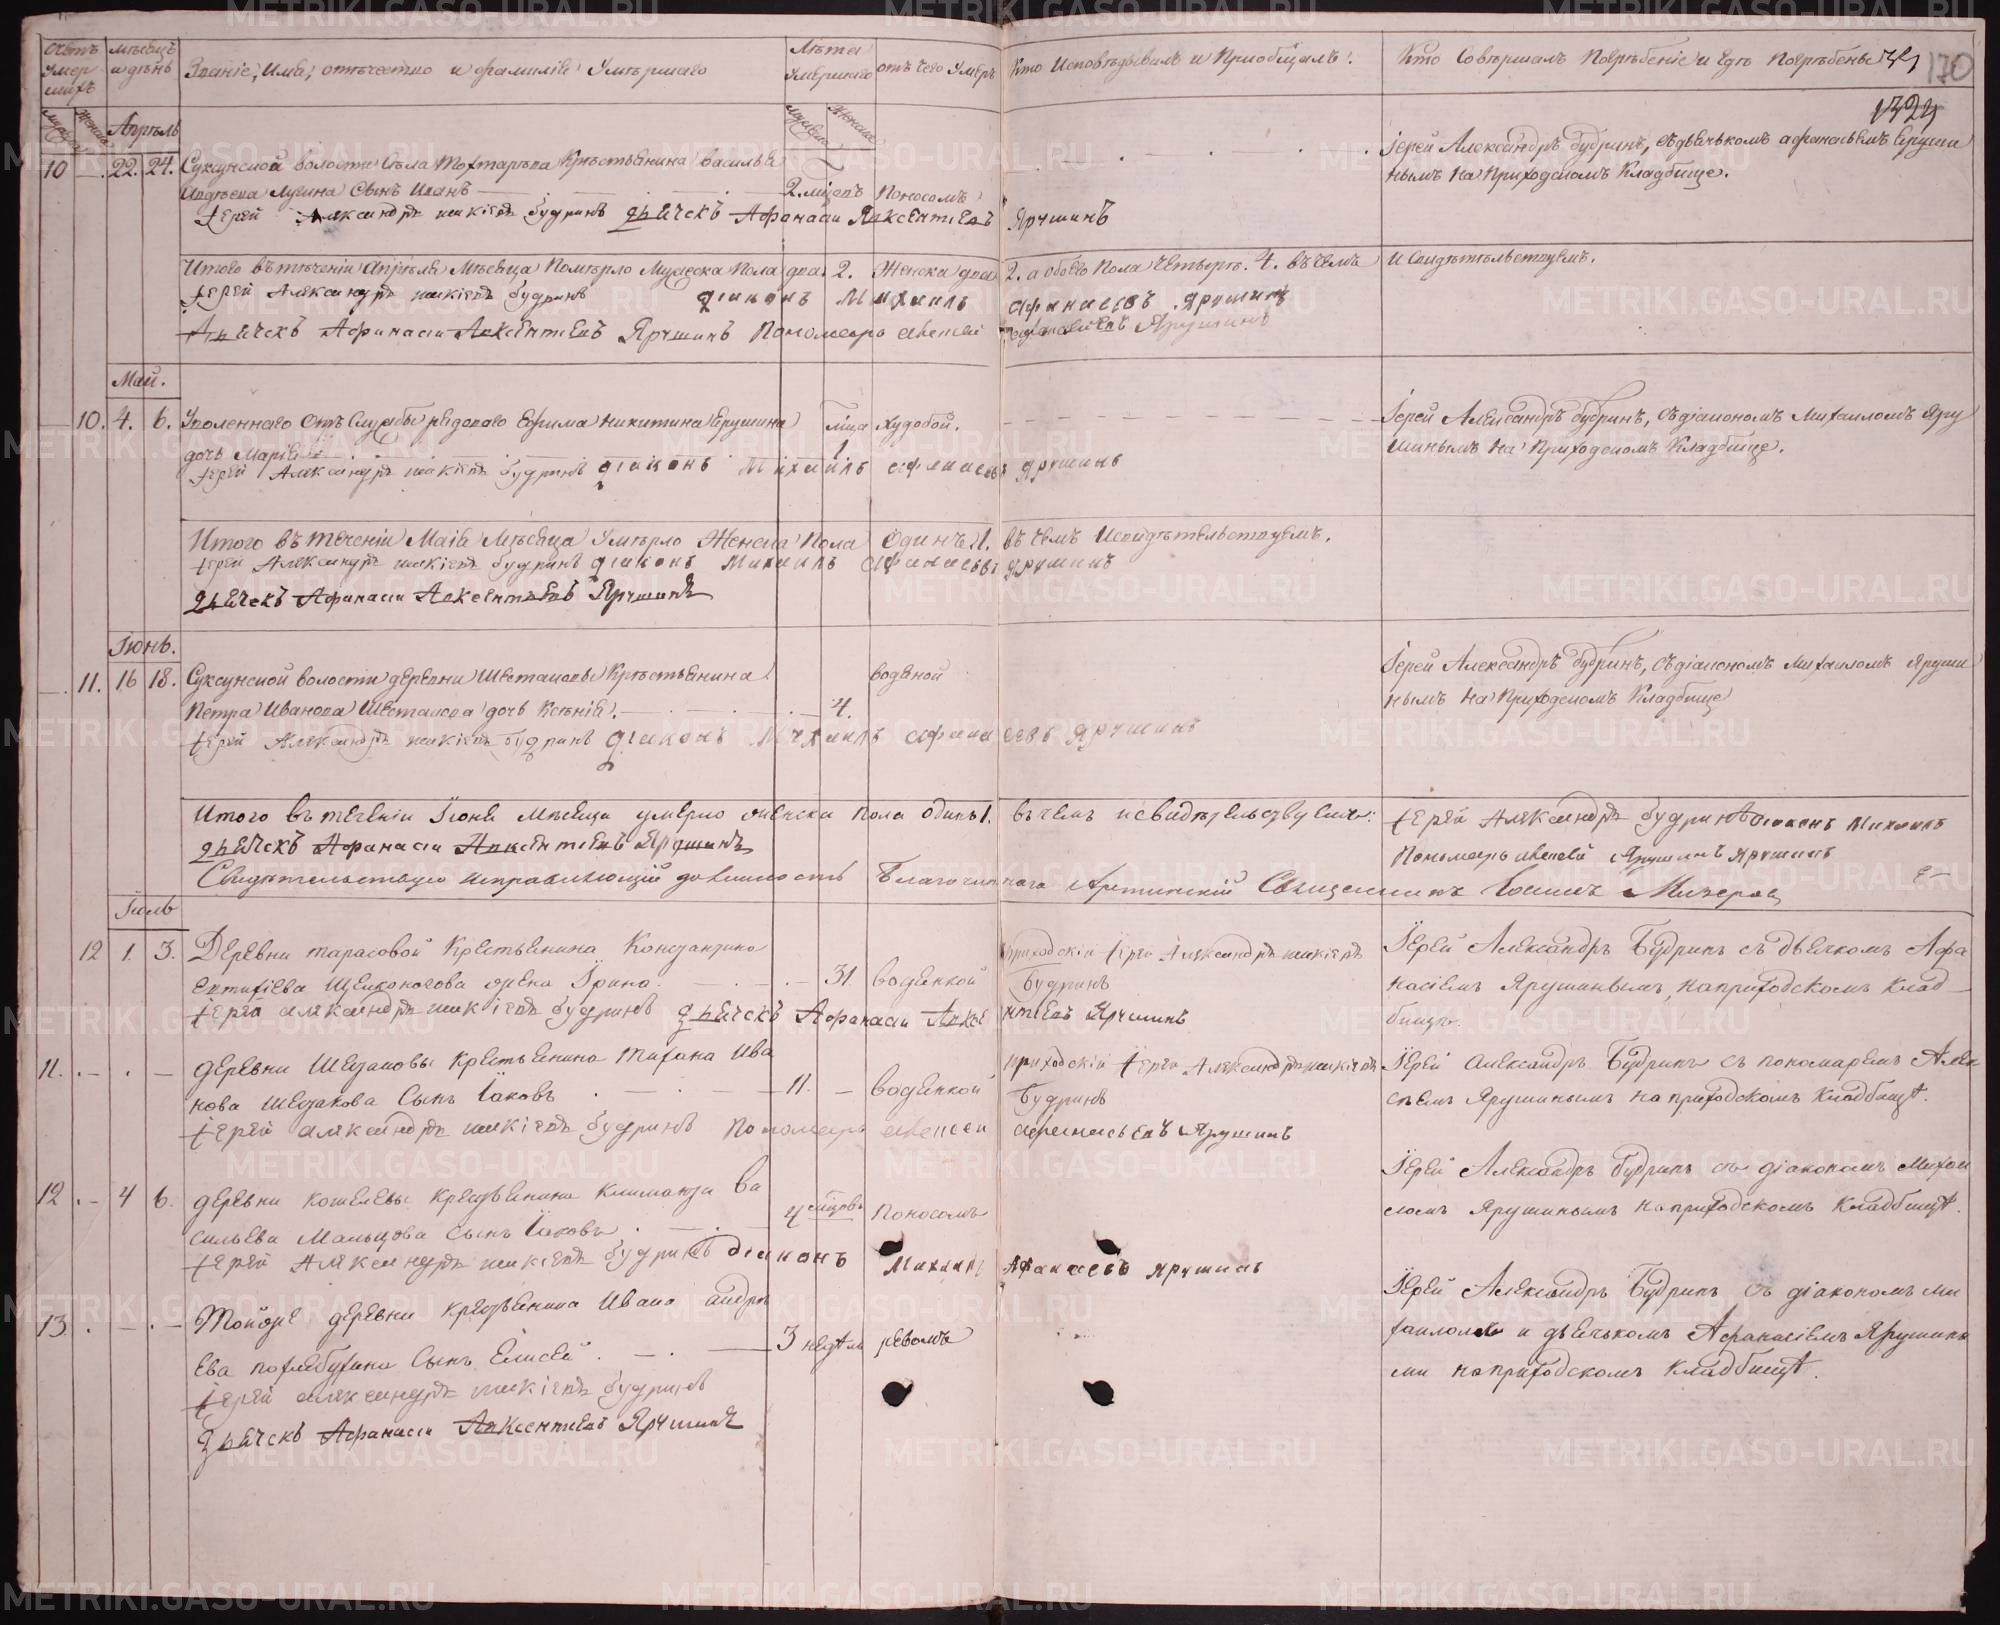 Счетъ умершихъ
Мѣсяцъ и день
Званіе, имя, отчество и фамилія умершаго
Лѣта умершаго
отъ чего умеръ
Кто исповѣдывалъ и пріобщалъ.
Кто совершалъ погребеніе и гдѣ погребены
170
Апрѣль
10 22. 24. Суксунской волости села Тохтарева крестьянина Василья
сынъ Иванъ 2. мѣсяцъ Поносомъ
Іерей Александръ Будринъ, съ дьячькомъ Афанасьемъ Еруши
нымъ на Приходскомъ Кладбище.
Іерей Александръ Будринъ дьячекъ Афанасіи Авксентіевъ Ярушинъ
Итого въ теченіи Апрѣля Мѣсяца Помѣрло Мужеска пола два 2. Женска два 2. а обоего пола четыре. 4. въ чемъ и свидѣтельствуемъ.
Іерей Александръ Будринъ діаконъ Михаилъ Афанасевъ Ярушинъ
Дьячекъ Афанасіи Авксентіевъ Ярушинъ Пономарь Ярушинъ
Май.
10. 4. 6. Уволеннаго отъ Службы рядоваго Ефима Никитина Ерушина
дочь Марія 1 Худобой.
Іерей Александръ Будринъ, съ діакономъ Михаиломъ Яру
шинымъ на Приходскомъ Кладбище.
Іерей Александръ Будринъ діаконъ Михаилъ Афанасьевъ Ярушинъ
Итого въ теченіи Маія Мѣсяца Умѣрло Женска Пола Одинъ 1. въ чемъ и свидѣтельствуемъ.
Іерей Александръ Будринъ діаконъ Михаилъ Афанасьевъ Ярушинъ
Дьячекъ Афанасіи Авксентьевъ Ярушинъ
Іюнь.
11. 16 18. Суксунской волости деревни Шестаковы Крестьянина
Петра Иванова Шестакова дочь Ксенія. 4. водяной
Іерей Александръ Будринъ, съ діакономъ Михаиломъ Яруши
нымъ на Приходскомъ Кладбище
Іерей Александръ Будринъ діаконъ Михаилъ Афанасевъ Ярушинъ
Итого въ теченіи Іюня Мѣсяца умерло женска пола одинъ 1. въ чемъ и свидѣтельствуемъ: Іерей Александръ Будринъ діаконъ Михаилъ
Дьячекъ Афанасіи Авксентіевъ Ярушинъ
Пономарь Ярушинъ
Свидѣтельствую исправляющій должность Благочиннаго Артинскій Священникъ
Іюль
12 1. 3. Деревни Тарасовой Крестьянина Константина
Евтихіева Щелконогова жена Ирина. 31. водянкой
Приходскій Іерей Александръ Будринъ
Іерей Александръ Будринъ съ дьячкомъ Афа
насіемъ Ярушинымъ, на приходскомъ Клад
бищѣ.
Іерей Александръ Будринъ дьячекъ Афанасіи Авксентіевъ Ярушинъ
11. деревни Шестаковы Крестьянина Ива
нова Шестакова Сынъ Іаковъ 11. водянкой
приходскій Іерей Александръ Будринъ
Іерей Александръ Будринъ съ пономаремъ Алек
сѣемъ Ярушинымъ на приходскомъ Кладбищѣ.
Іерей Александръ Будринъ Пономарь Афанасьевъ Ярушинъ
12. 4 6. деревни Кошелевы Крестьянина Ва
сильева Мальцова Сынъ Іаковъ. 4 мѣсяцовъ Поносомъ
Іерей Александръ Будринъ съ діакономъ Михаи
ломъ Ярушинымъ на приходскомъ Кладбищѣ.
Іерей Александръ Будринъ діаконъ Михаилъ Афанасевъ Ярушинъ
13. Тойже деревни крестьянина Ивана Андре
ева Сынъ Елисей. 3 недѣли ревомъ
Іерей Александръ Будринъ съ діакономъ Ми
хаиломъ и дьячькомъ Афанасіемъ Ярушины
ми на приходскомъ Кладбищѣ.
Іерей Александръ Будринъ
Дьячекъ Афанасіи Авксентіевъ Ярушинъ
METRIKI.GASO-URAL.RU